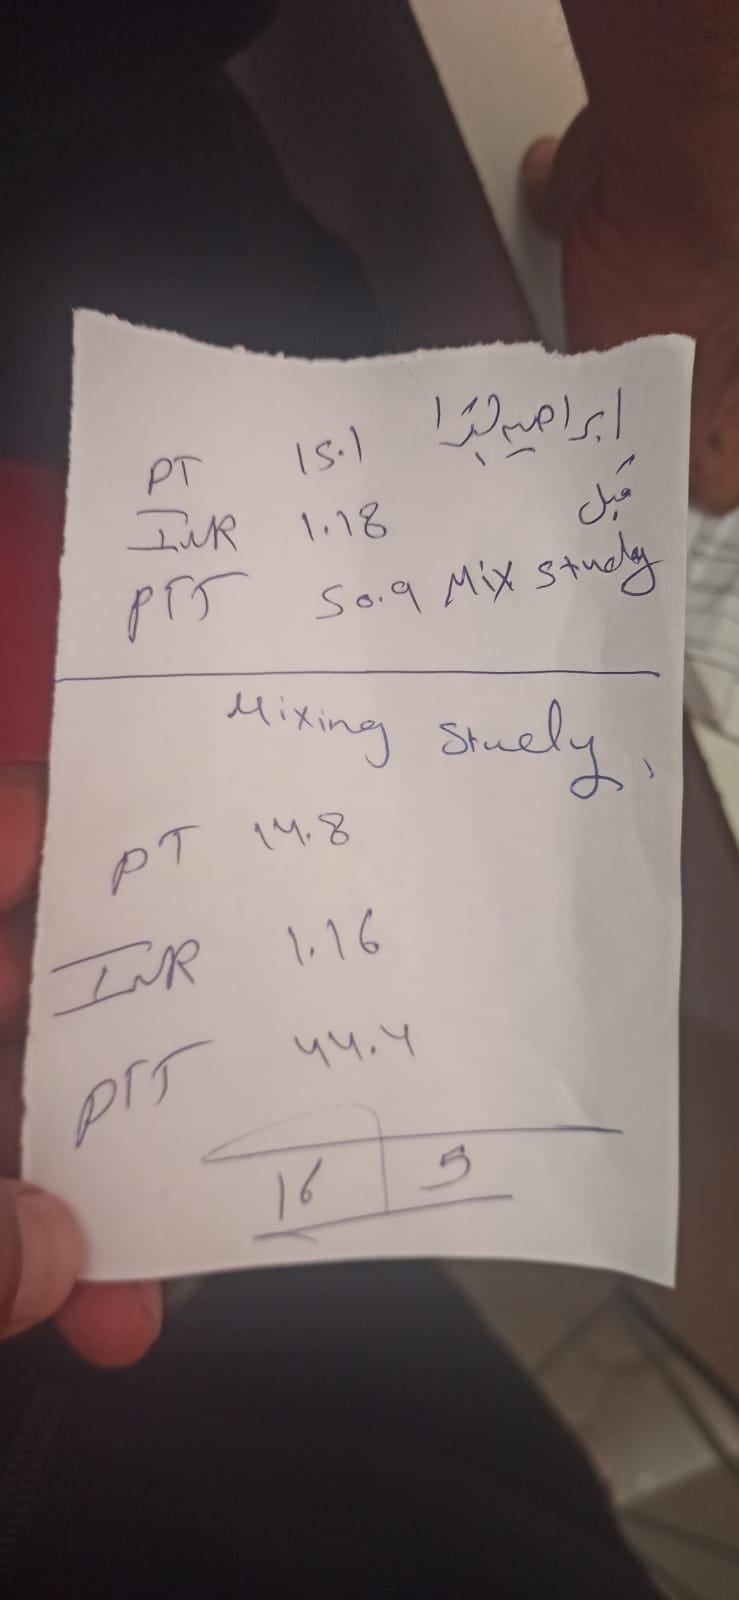 PT 15.1 ابراهيم
INR 1.18 قبل
PTT 50.9 Mix study
Mixing Study,
PT 14.8
INR 1.16
PTT 44.4
16 5